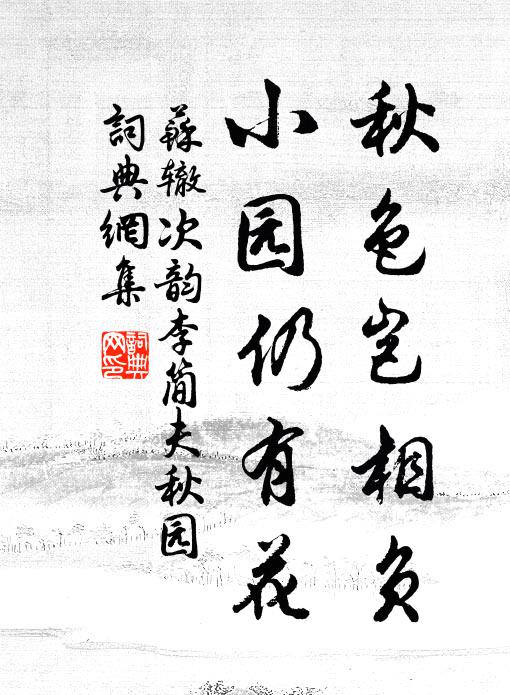 秋色岂相负
小园仍有花
蘇辙次韵李简夫秋园
詞典網集
詞典网印